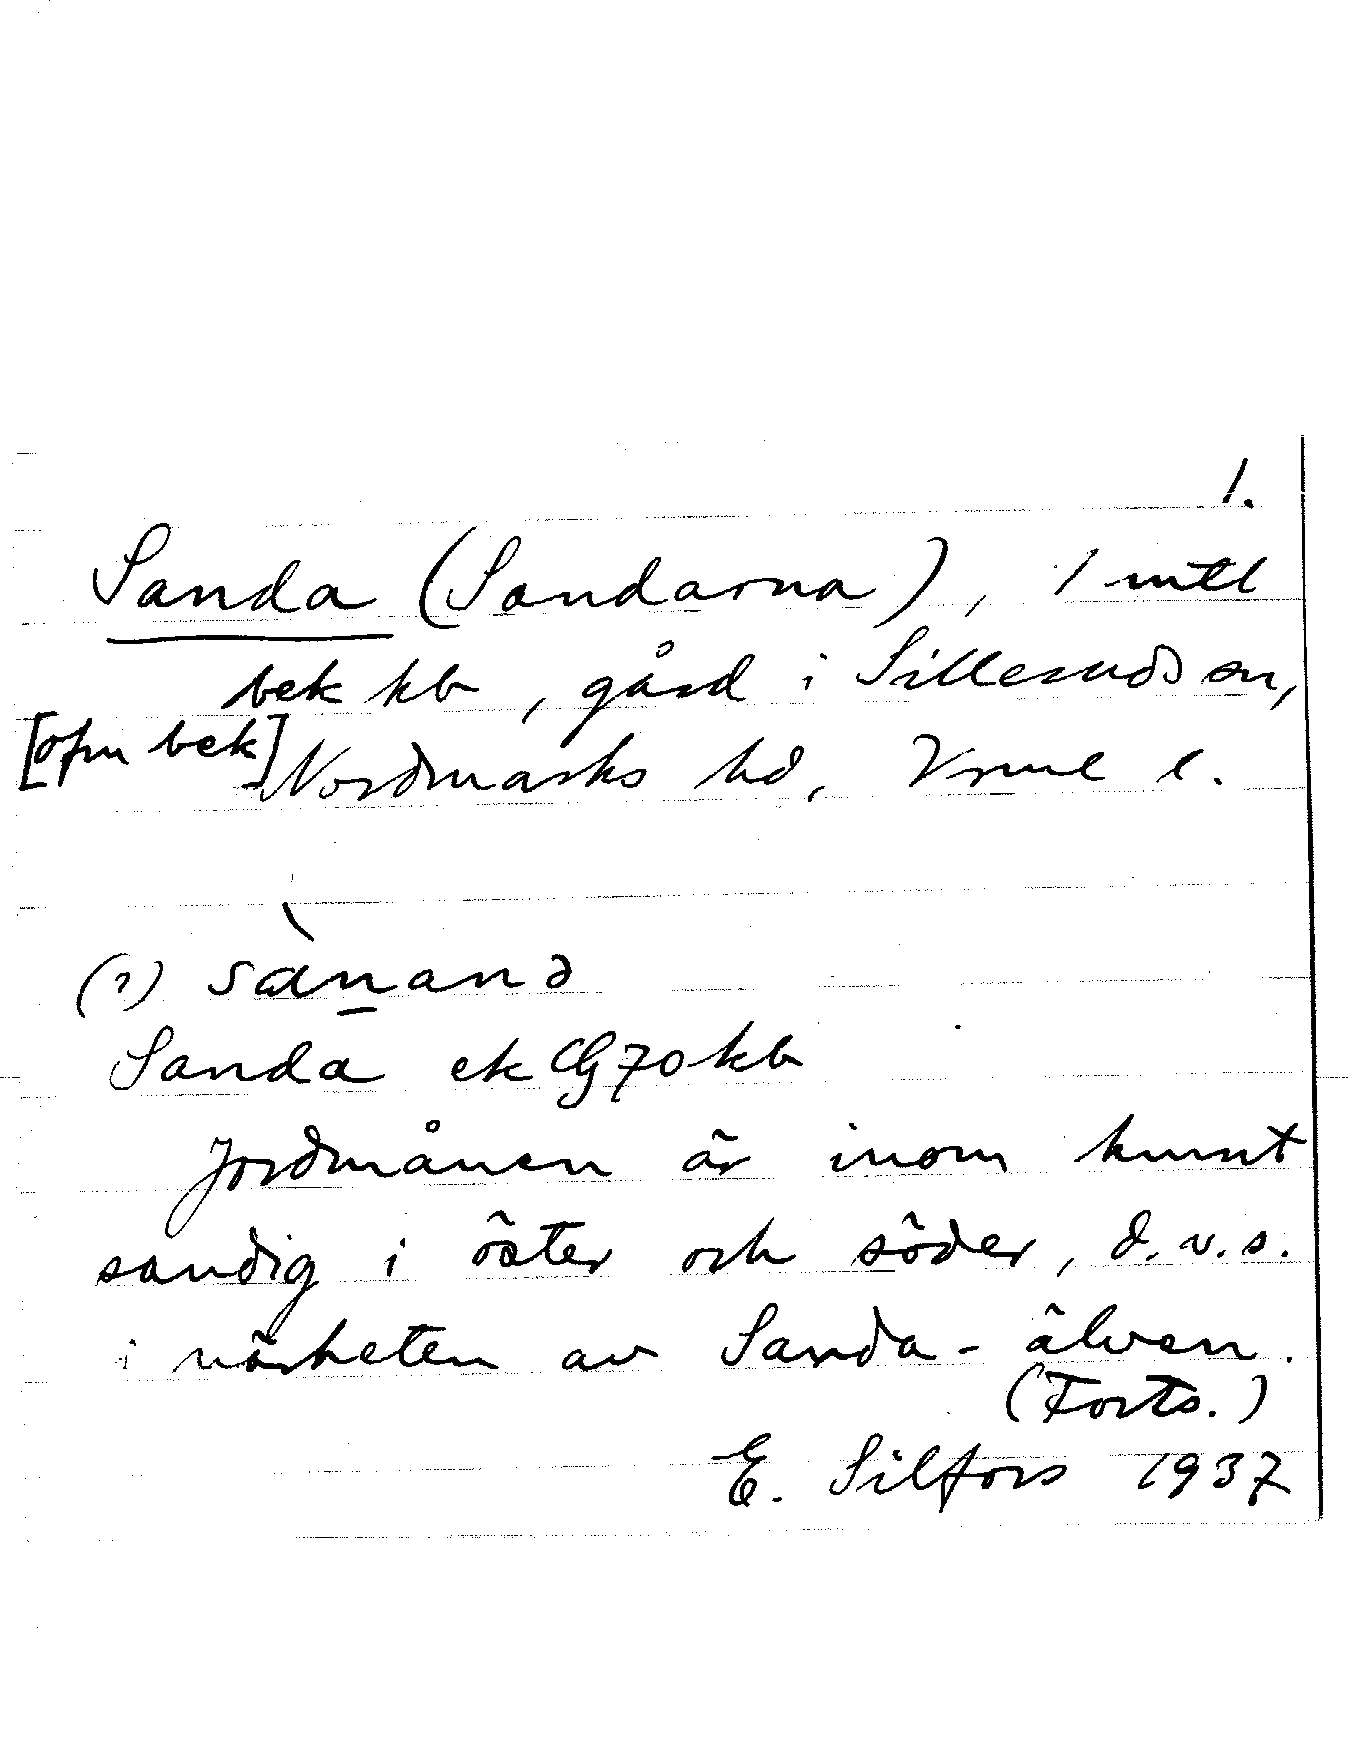 1.
Sanda (Sandarna), 1 mtl
bek kb, gård i Sillerud sn,
[ofm bek] Nordmarks hd, Vrml l.
(1) sànanə
Sanda ek CG 70 kb
Jordmånen är inom kmnt
sandig i öster och söder, d.v.s.
i närheten av Sanda-älven.
(Forts.)
E. Silfors 1937